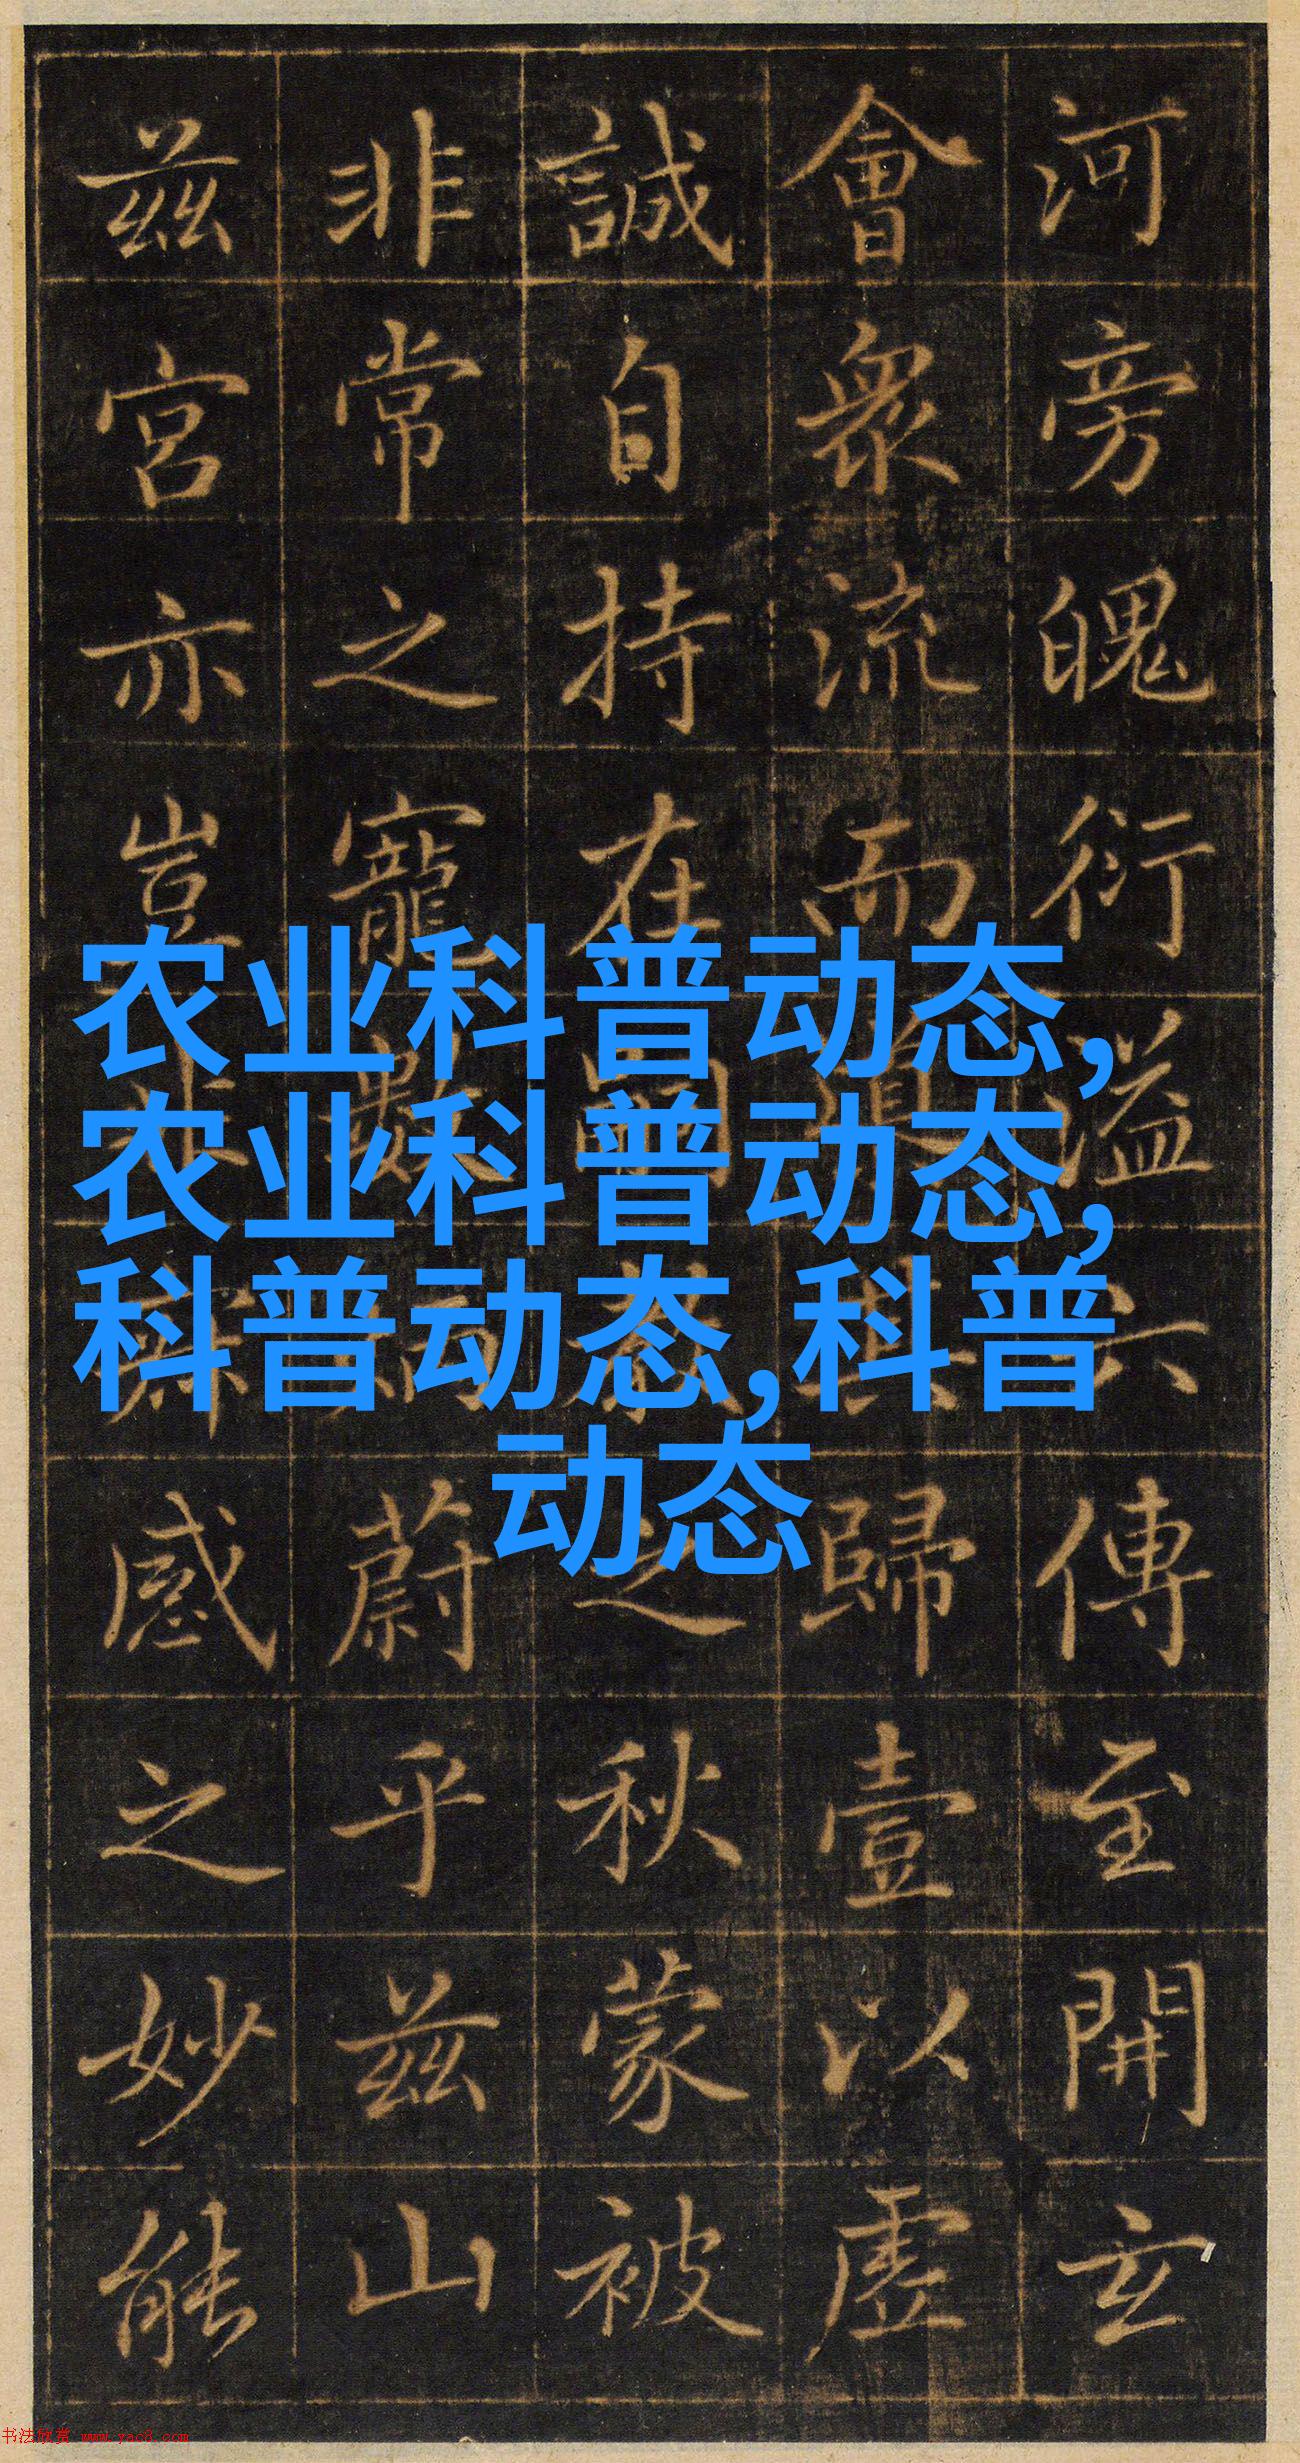 河旁魄衍溢六傳至開玄
會衆流而以歸壹以虛
誠自持在之秋蒙被
非常之寵數蔚乎茲山
茲宮亦豈非感之妙能
农业科普动态,
农业科普动态,
科普动态,科普
动态
书法欣赏 www.yac8.com